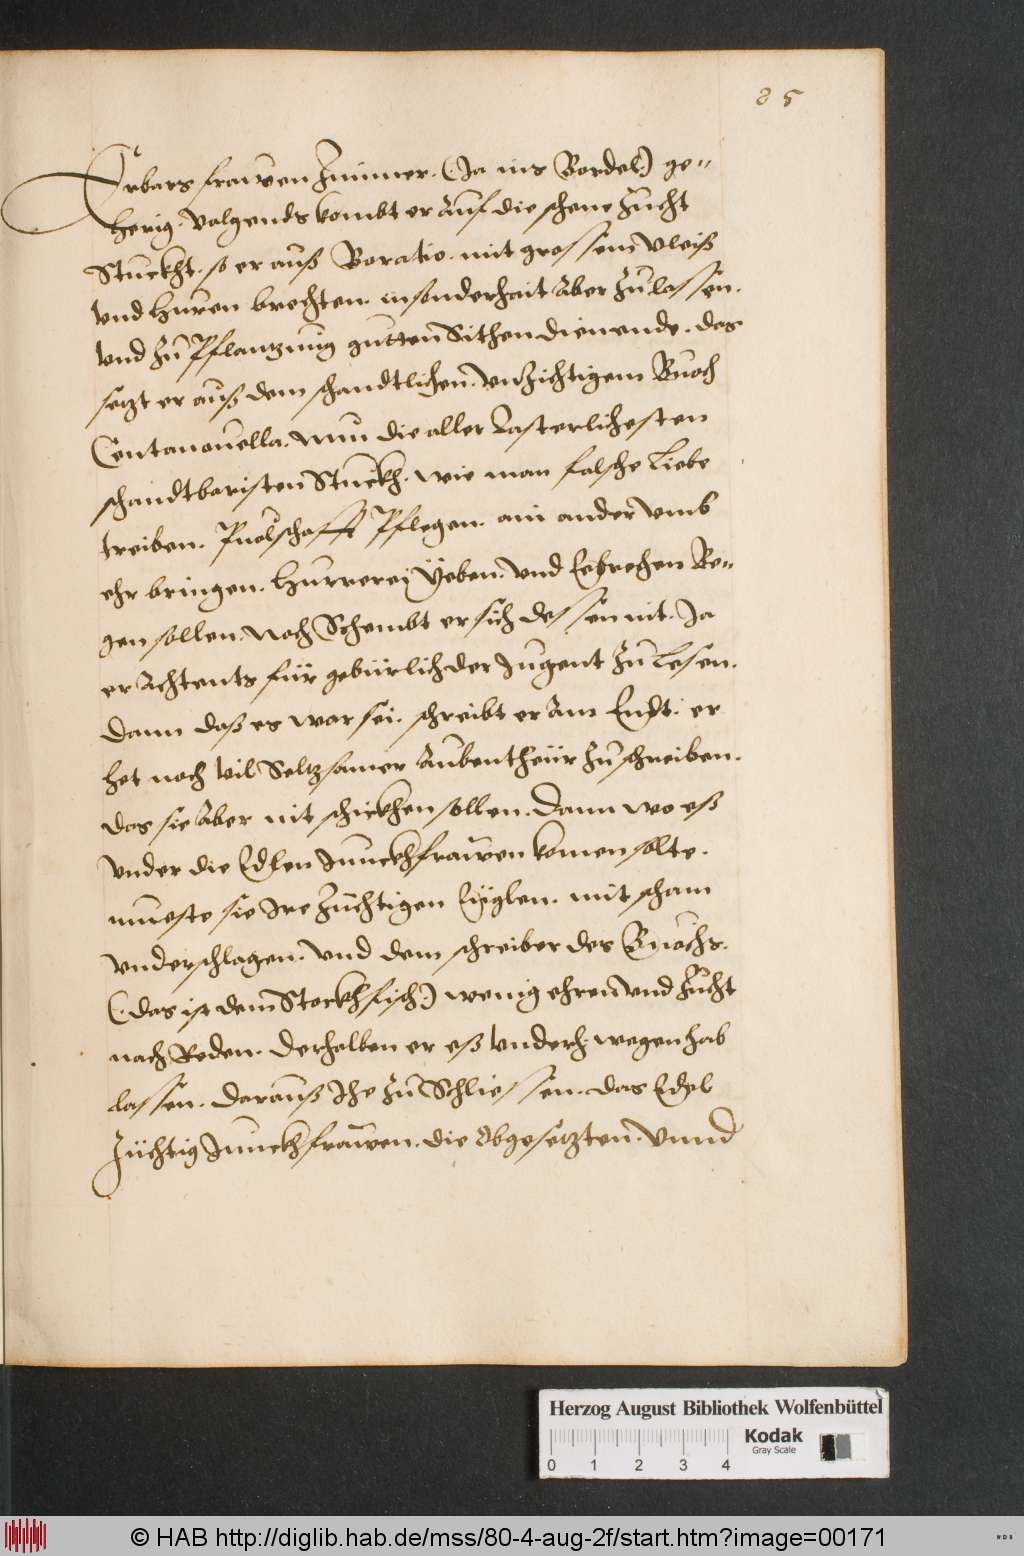 85
Erbars frawen Zimmer. (Ja ins Bordel) ge-
herig. Volgends kombt er Auf die schene Zucht
Stuckht. so er auß Boratio. mit grossem Vleiß
Vnd Huren brechten. in sonderhait Aber Zulassen.
Vnd zu Pflantzung gutten Sithen dienende. das
setzt er auß dem schandtlichen. Vnzichtigem Buoch
Centanouella. Nun die aller Lasterlichesten
schandtbaristen Stuckh. wie man falsche Liebe
treiben. Puolschafft Pflegen. ain ander vmb
ehr bringen. Hurrerei Yeben. vnd Ehrechen Re-
gen sollen. Noch Schembt er sich dessen nit. Ja
er Achtents für gebürlich der Jugent zu Lesen.
Dann daß es war sei. schreibt er Am Endt. er
het noch Vil Seltzsamer Aubentheür zu schreiben.
das sie Aber nit schickhen sollen. Dann wo eß
Vnder die Edlen Junckhfrawen komen solte.
mueste sie Ire Züchtigen Eüglen. mit scham
Vnderschlagen. Vnd dem schreiber des Buochs.
(das ist dem Storkhfisch) wenig ehren vnd Zucht
nach Reden. Derhalben er eß Vnderwegen hab
lassen. Darauß Ihe zu Schliessen. das Edel
Züchtig Junckhfrawen. die Abgesetzten. Vnnd
Herzog August Bibliothek Wolfenbüttel
Kodak
Gray Scale
0 1 2 3 4
© HAB http://diglib.hab.de/mss/80-4-aug-2f/start.htm?image=00171